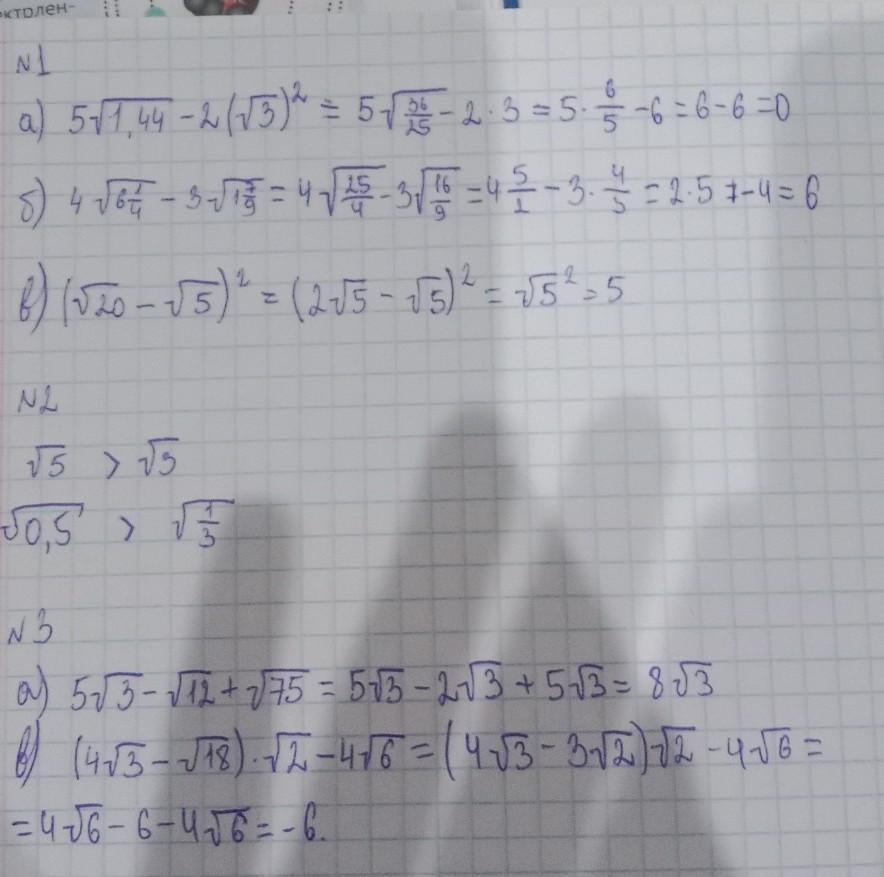 ктолен-
N1
а) 5√1,44 - 2(√3)² = 5√36/25 - 2·3 = 5·6/5 - 6 = 6 - 6 = 0
б) 4√6 1/4 - 3√1 7/9 = 4√25/4 - 3√16/9 = 4 5/2 - 3·4/3 = 2·5 - 4 = 6
в) (√20 - √5)² = (2√5 - √5)² = √5² = 5
N2
√5 > √3
√0,5 > √1/3
N3
а) 5√3 - √12 + √75 = 5√3 - 2√3 + 5√3 = 8√3
в) (4√3 - √18)·√2 - 4√6 = (4√3 - 3√2)√2 - 4√6 =
= 4√6 - 6 - 4√6 = -6.